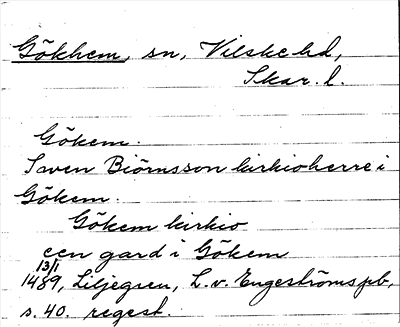 Gökhem, sn, Vilske hd,
Skar. l.
Gökem.
Swen Biörnsson kirkioherre i
Gökem.
Gökem kirkio
een gard i Gökem
13/1
1489, Liljegren, L. v. Engeströms pb,
s. 40. regest.